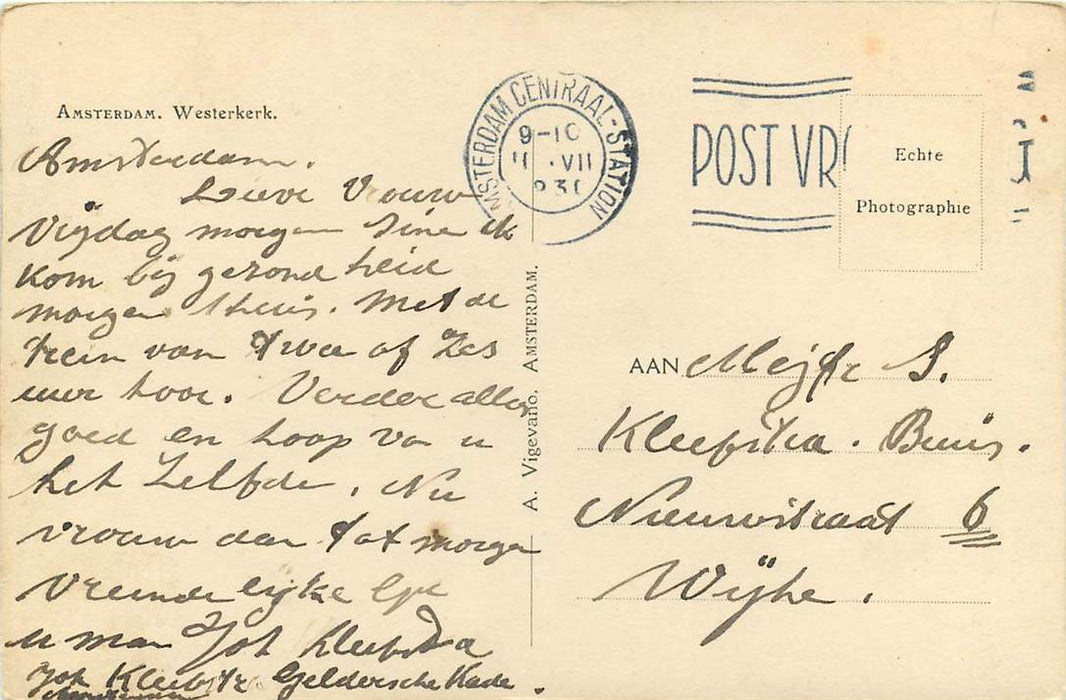 Amsterdam. Westerkerk.
Amsterdam.
Lieve Vrouw
Vrijdag morgen Sine ik
kom bij gezond heid
morgen thuis. Met de
trein van twee of Zes
uur hoor. Verder alles
goed en hoop van u
het Zelfde. Nu
vrouw dan tot morgen
Vriende lijke
u man Joh Kleefstra
Joh Kleefstr Geldersche Kade.
A. Vigevano. Amsterdam.
AMSTERDAM CENTRAAL-STATION
9-10
11 .VII
POST VR
Echte
Photographie
AAN Mejfr S.
Kleefstra. Buis.
Nieuwstraat 6
Wijhe.